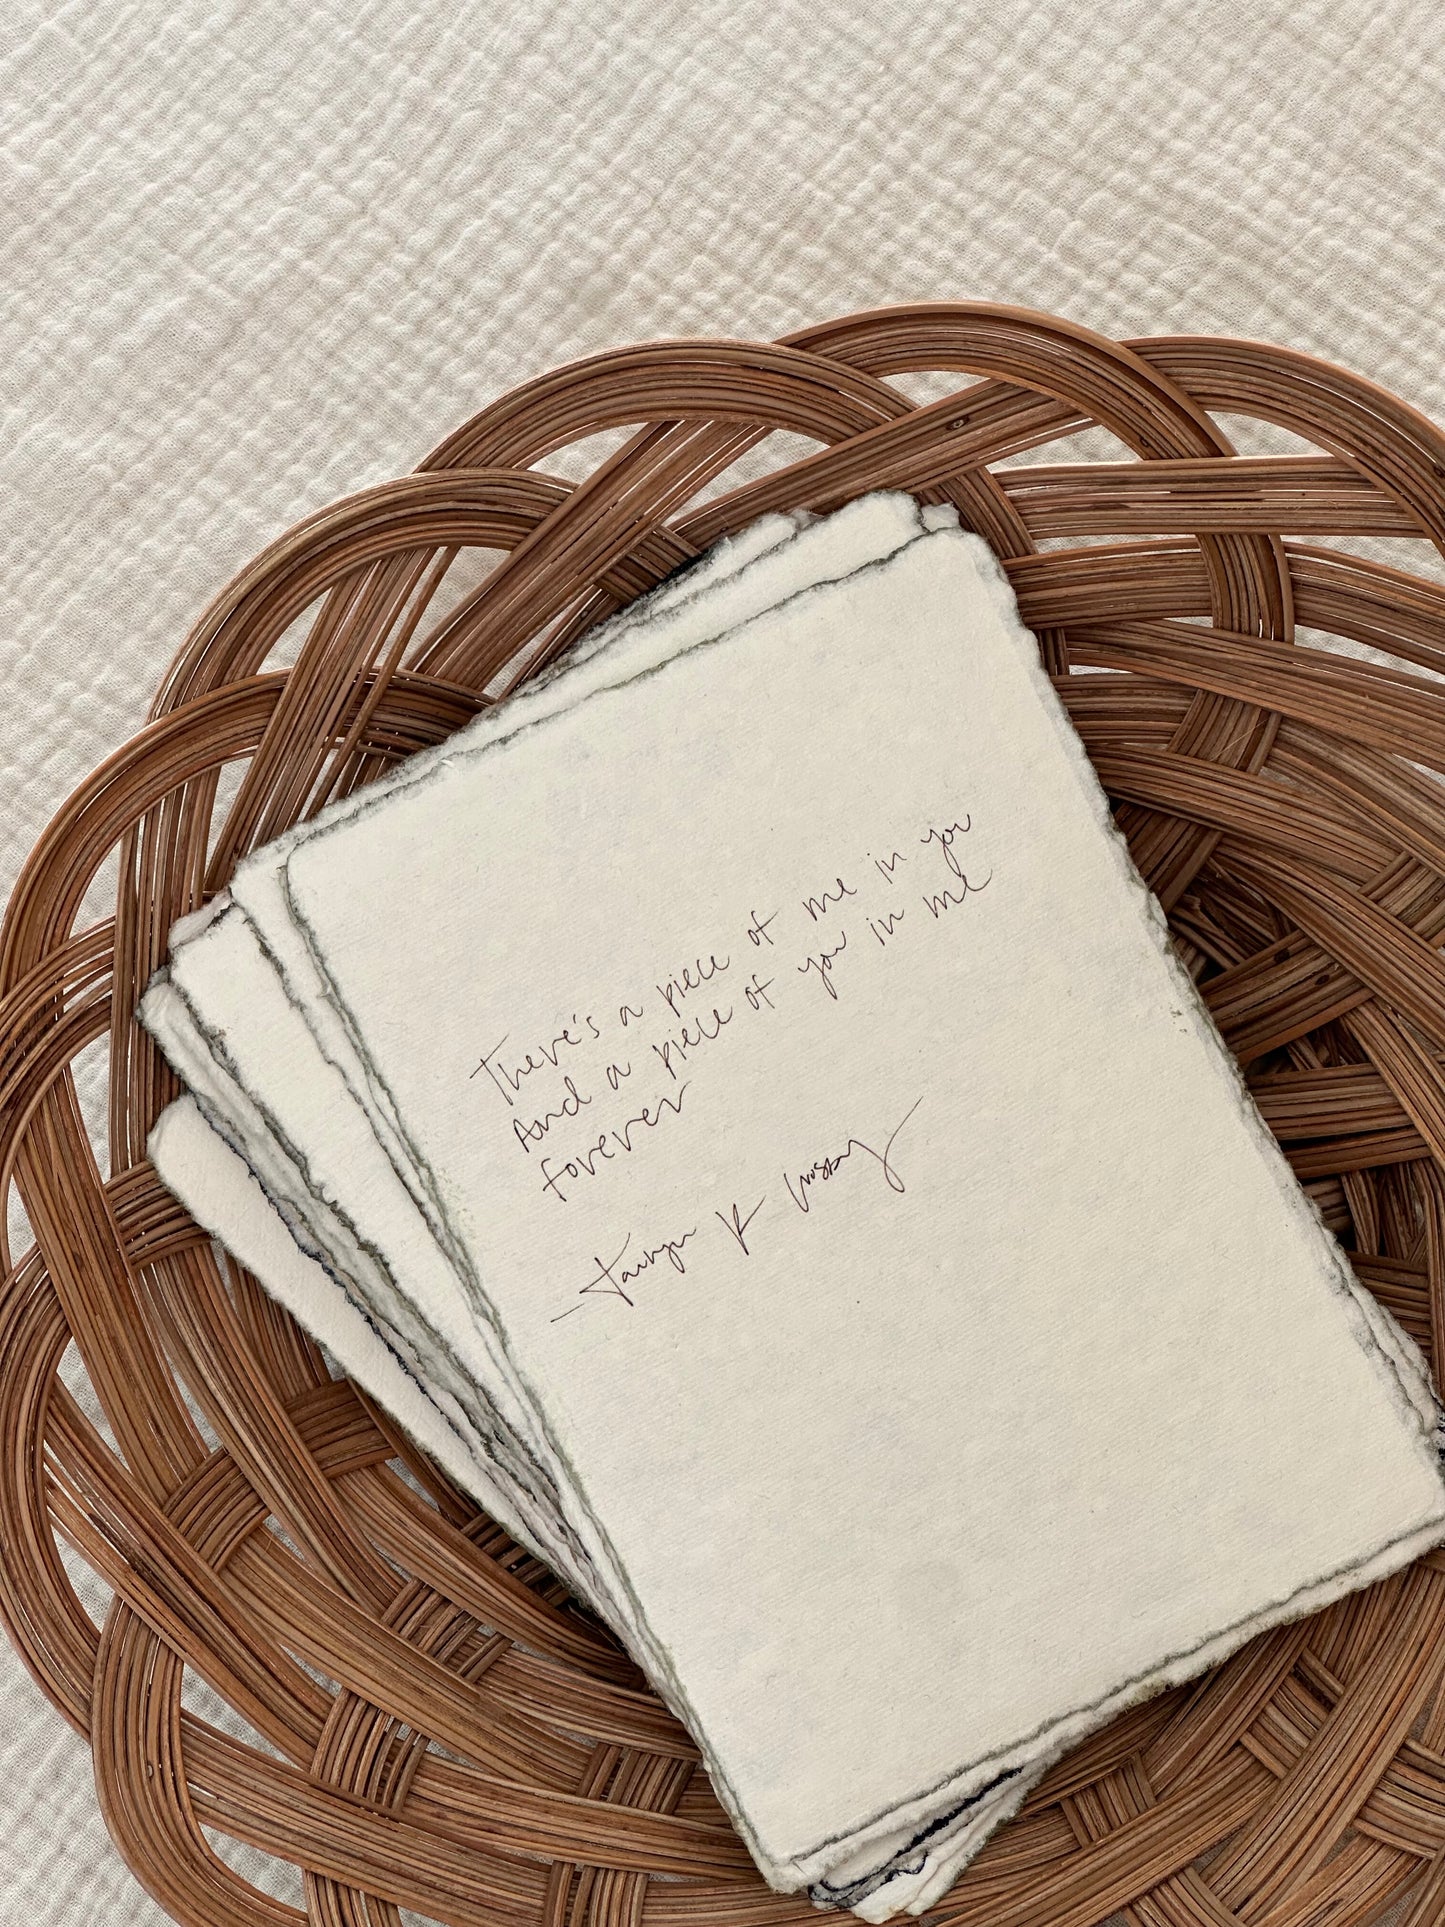 There's a piece of me in you
And a piece of you in me
forever
- Taryn K Crosby